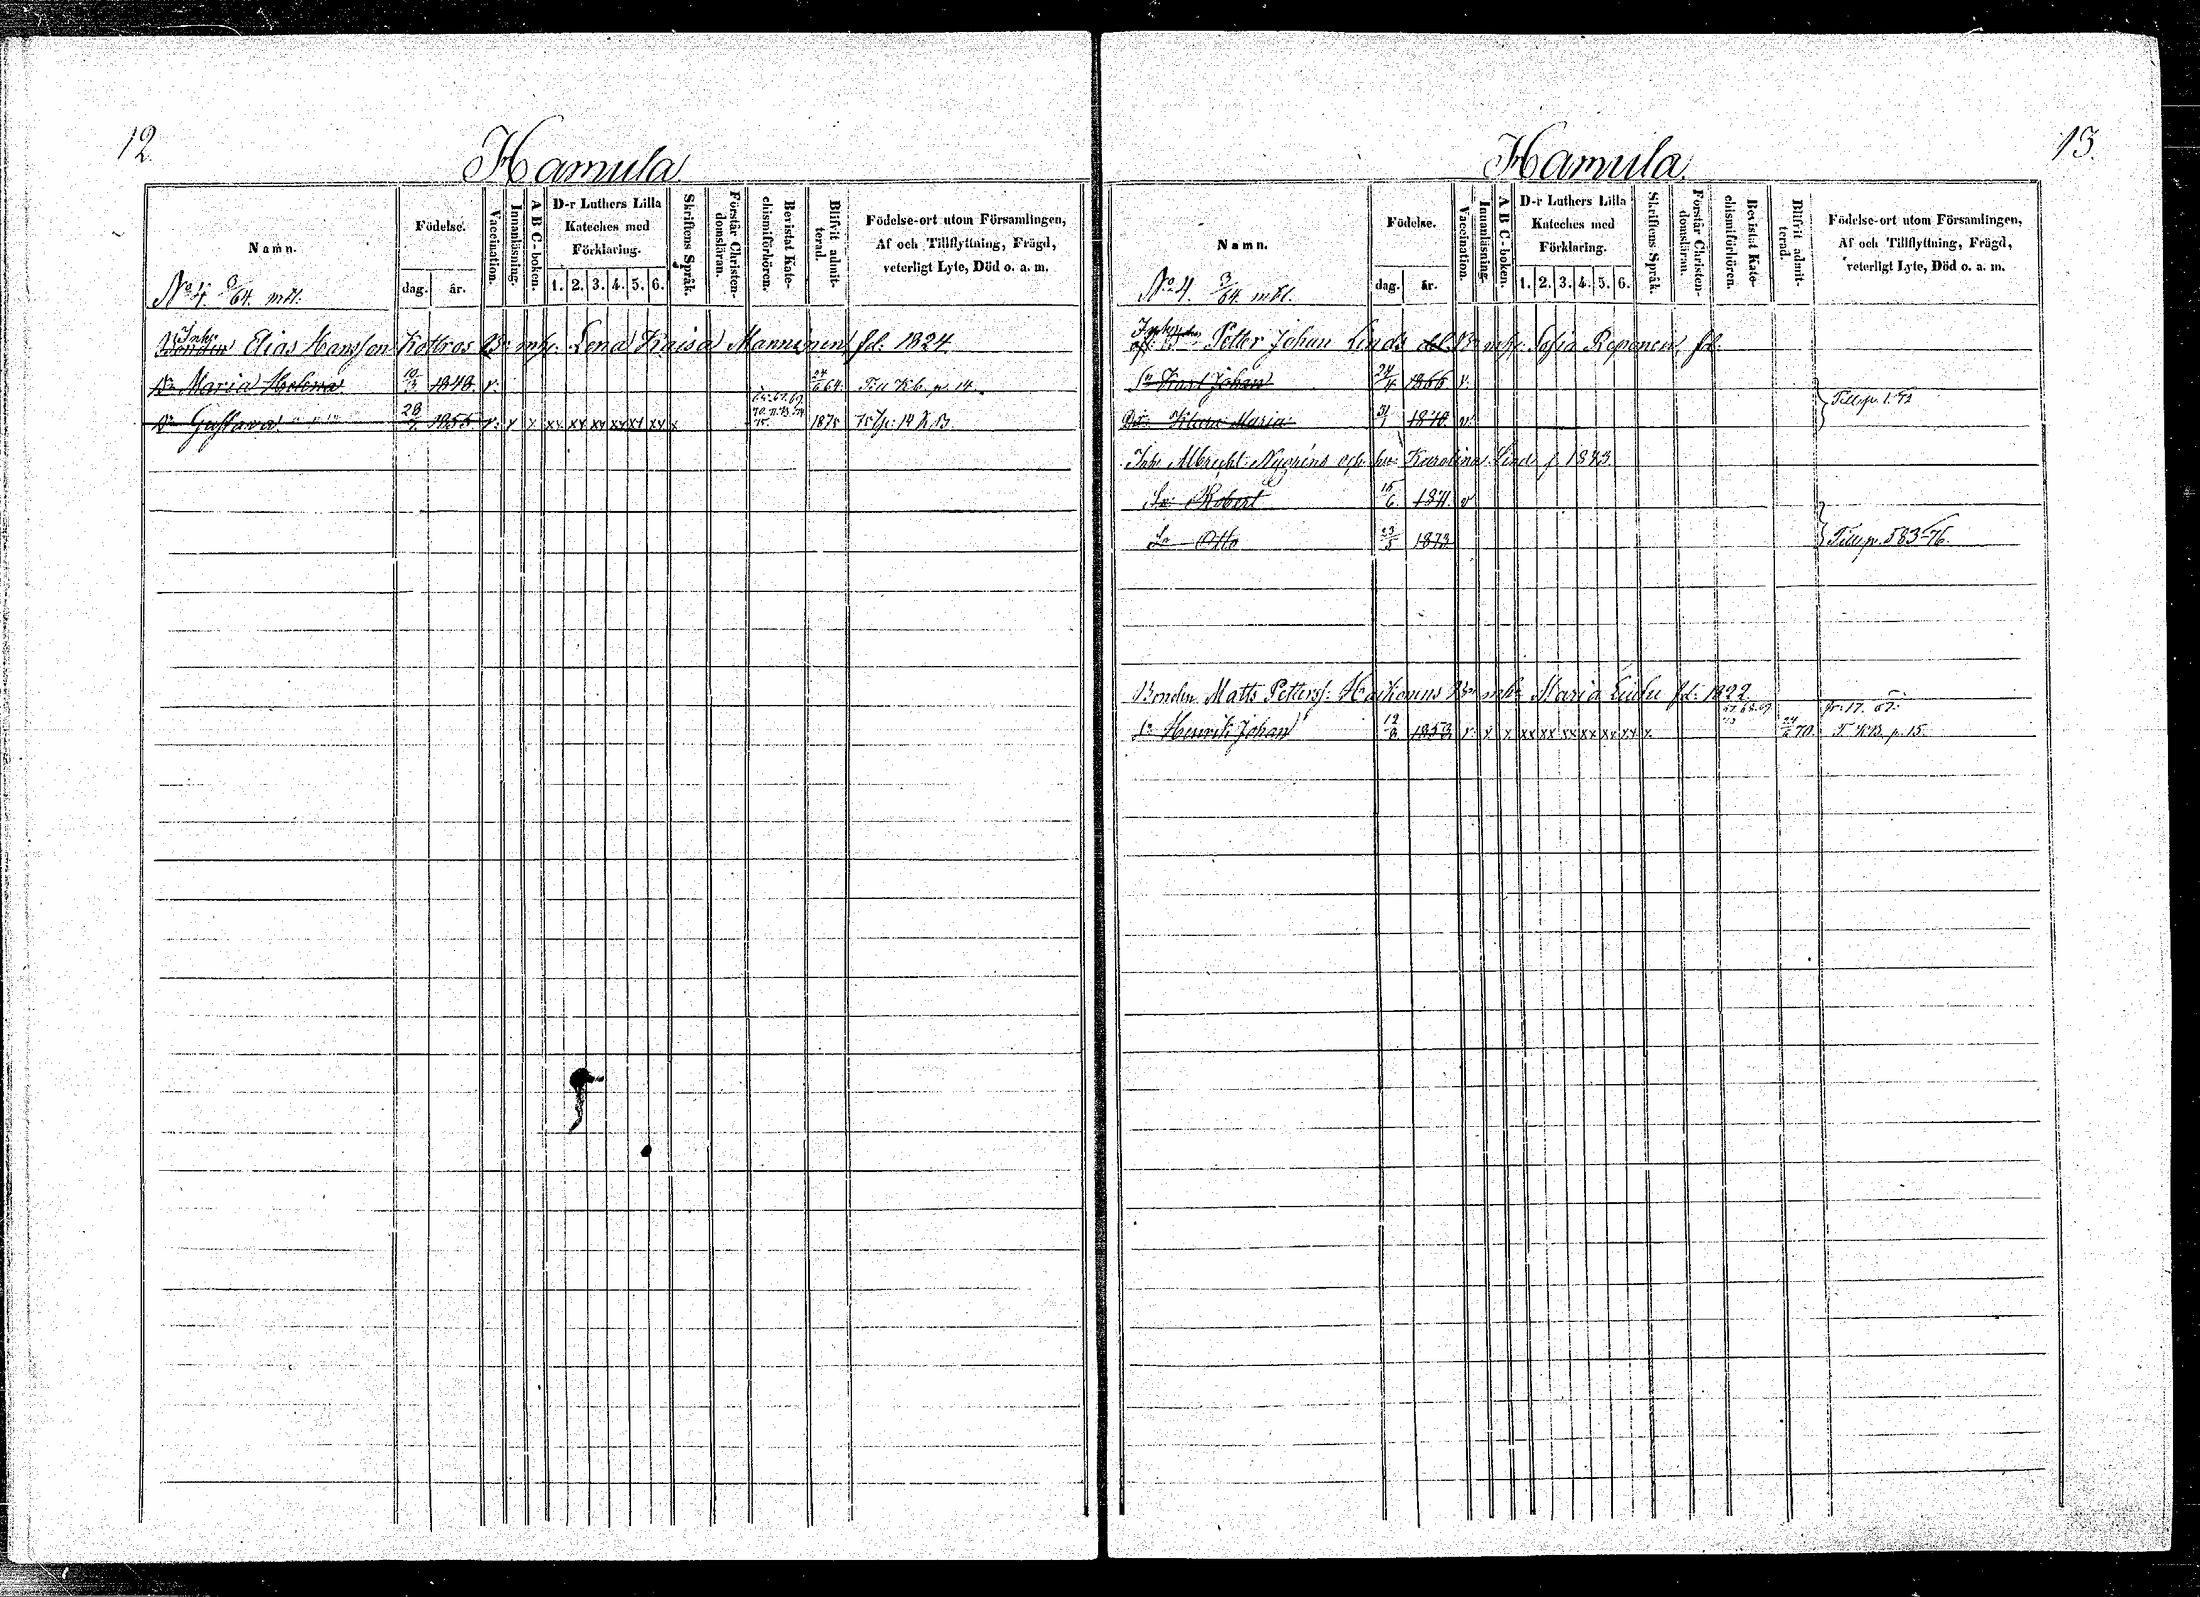 12.
Hamula
Namn.
Födelse.
dag. år.
Vaccination.
Innanläsning.
A B C-boken.
D-r Luthers Lilla
Kateches med
Förklaring.
1. 2. 3. 4. 5. 6.
Skriftens Språk.
Förstår Christen-
domsläran.
Bevistat Kate-
chismiförhören.
Blifvit admit-
terad.
Födelse-ort utom Församlingen,
Af och Tillflyttning, Frägd,
veterligt Lyte, Död o. a. m.
No 4. 3/64. mtl.
Inh:
Bonden Elias Hansson Kottros Br mh: Lena Kaisa Manninen fd. 1824.
Dr Maria Helena 10/3 1848 v. 24/6 64. p. 14.
Dr Gustava 28/7 1855 v. x x xx xx xx xx xx xx x 70. 75. 1875
13.
Hamula.
Namn.
Födelse.
dag. år.
Vaccination.
Innanläsning.
A B C-boken.
D-r Luthers Lilla
Kateches med
Förklaring.
1. 2. 3. 4. 5. 6.
Skriftens Språk.
Förstår Christen-
domsläran.
Bevistat Kate-
chismiförhören.
Blifvit admit-
terad.
Födelse-ort utom Församlingen,
Af och Tillflyttning, Frägd,
veterligt Lyte, Död o. a. m.
No 4. 3/64. mtl.
Petter Johan Linds Br mh: Sofia Reponen, fd.
Sn Karl Johan 24/4 1866 v.
Maria 1870 v.
Inh. Albrecht Nygréns och hu: Karolina Lind f. 1843
Sn Robert 15/6 1871. v
Sn Otto 23/5 1873
Till p. 583-76.
Bonden Matts Petterss: Heikoinens Br mh: Maria fd: 1822
Sn Henrik Johan 12/3 1853 v. x x xx xx xx xx xx xx x. 67. 68. 69. 24/6 70. p. 15.